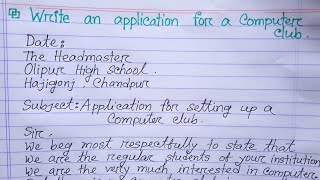 Write an application for a Computer
club.
Date:
The Headmaster
Olipur High school.
Hajigonj. Chandpur
Subject: Application for setting up a
Computer club.
Sir.
We beg most respectfully to state that
we are the regular students of your institution
We are the very much interested in computer.